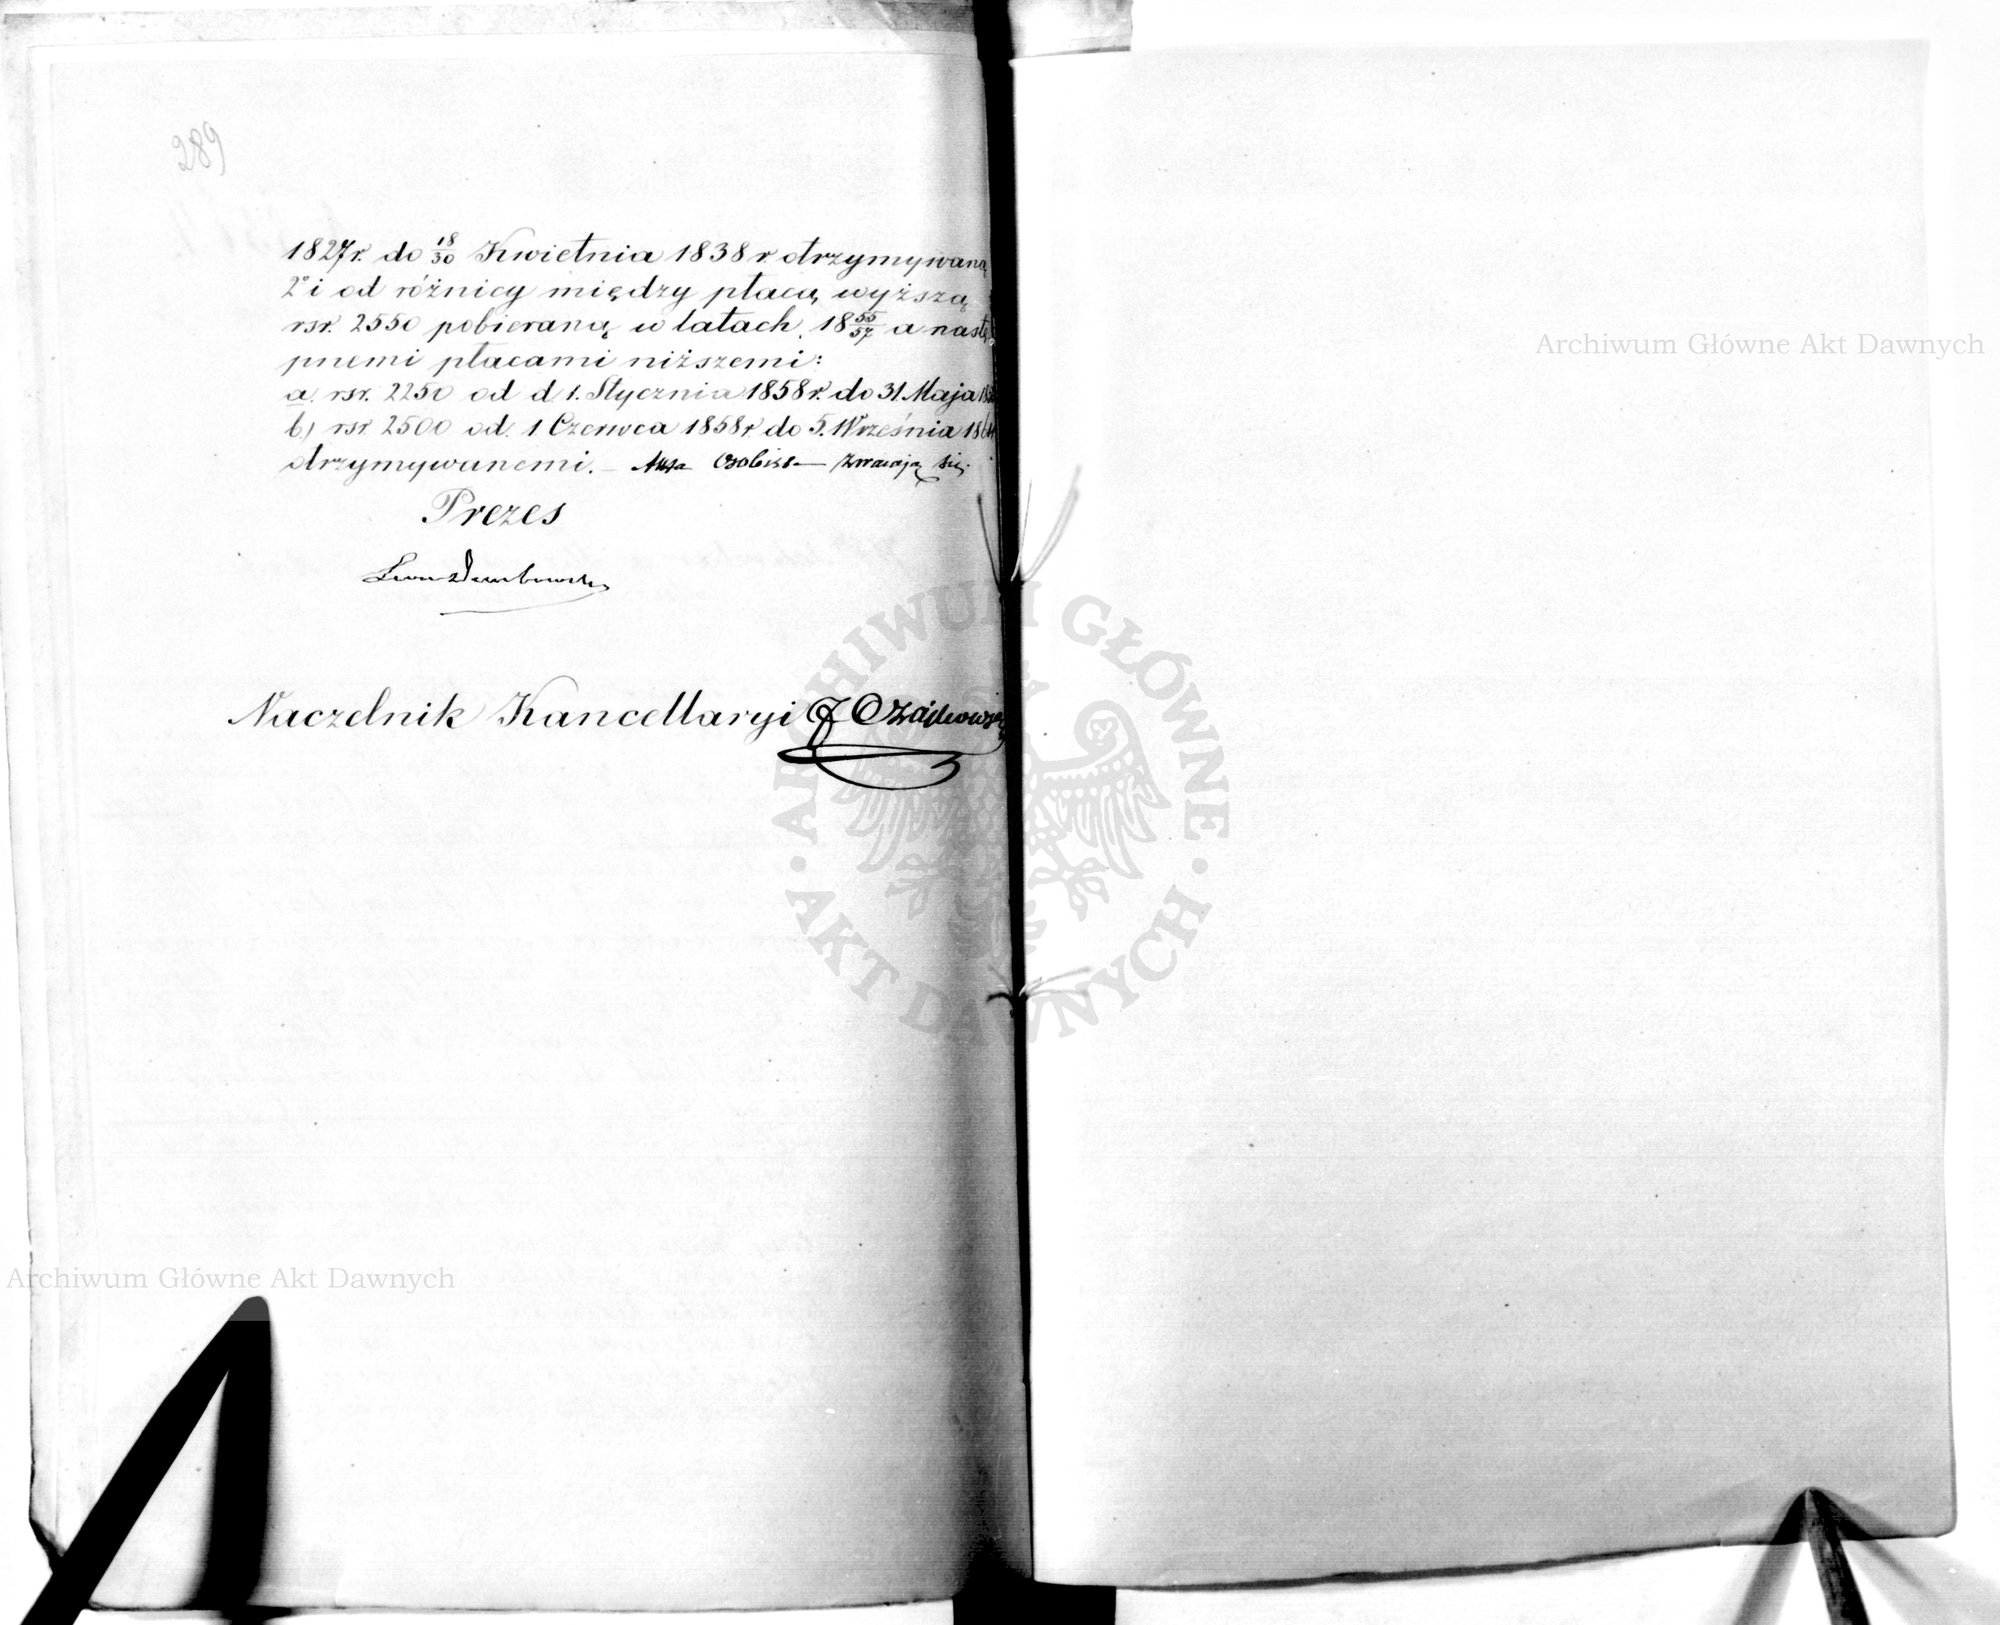 289
1827r. do 18/30 Kwietnia 1838 r. otrzymywaną
2° i od różnicy między płacą wyższą
rsr. 2550 pobieraną w latach 18 55/57 a nastę
pnemi płacami niższemi:
a. rsr. 2250 od d 1. Stycznia 1858 r. do 31. Maja
b) rsr. 2500 od. 1 Czerwca 1858 r. do 5. Września
otrzymywanemi. – Akta Osobiste zwracają się.
Prezes
Naczelnik Kancellaryi
Archiwum Główne Akt Dawnych
ARCHIWUM GŁÓWNE · AKT DAWNYCH ·
Archiwum Główne Akt Dawnych